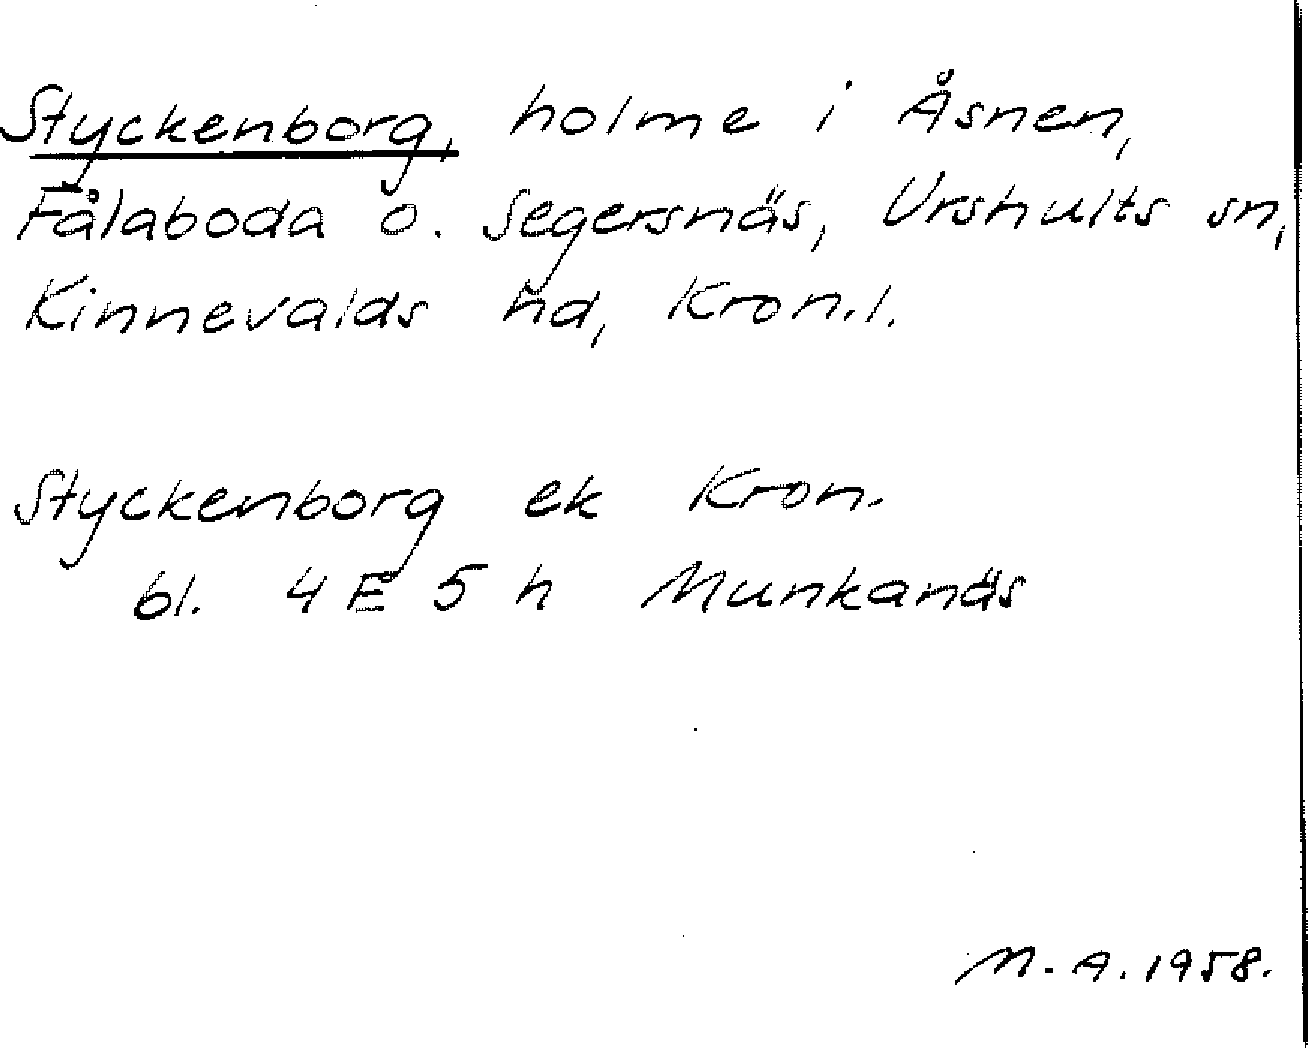 Styckenborg, holme i Åsnen,
Fålaboda o. Segersnäs, Urshults sn,
Kinnevalds hd, Kron.l.
Styckenborg ek Kron.
bl. 4 E 5 h Munkanäs
M. A. 1958.